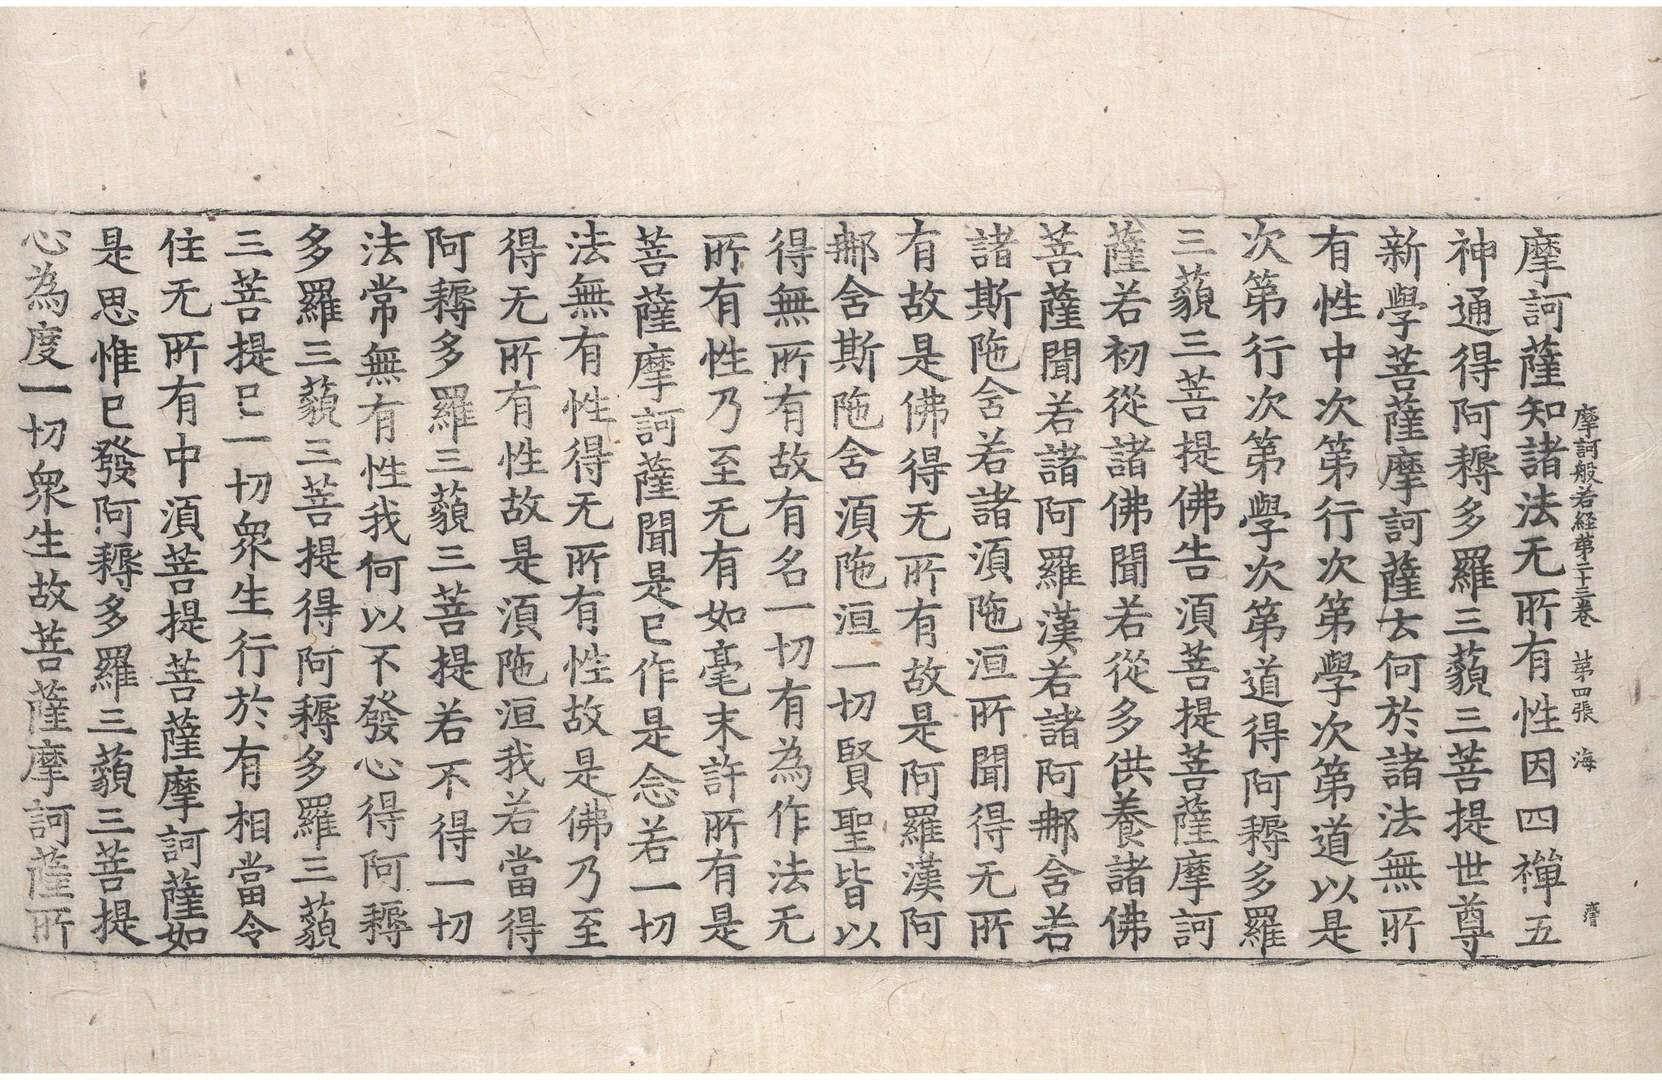 摩訶般若経第二十三巻　第四張　海
摩訶薩知諸法无所有性因四禪五
神通得阿耨多羅三藐三菩提世尊
新學菩薩摩訶薩云何於諸法無所
有性中次第行次第學次第道以是
次第行次第學次第道得阿耨多羅
三藐三菩提佛告須菩提菩薩摩訶
薩若初從諸佛聞若從多供養諸佛
菩薩聞若諸阿羅漢若諸阿那含若
諸斯陁含若諸須陁洹所聞得无所
有故是佛得无所有故是阿羅漢阿
那含斯陁含須陁洹一切賢聖皆以
得無所有故有名一切有為作法无
所有性乃至无有如毫末許所有是
菩薩摩訶薩聞是已作是念若一切
法無有性得无所有性故是佛乃至
得无所有性故是須陁洹我若當得
阿耨多羅三藐三菩提若不得一切
法常無有性我何以不發心得阿耨
多羅三藐三菩提得阿耨多羅三藐
三菩提已一切衆生行於有相當令
住无所有中須菩提菩薩摩訶薩如
是思惟已發阿耨多羅三藐三菩提
心為度一切衆生故菩薩摩訶薩所